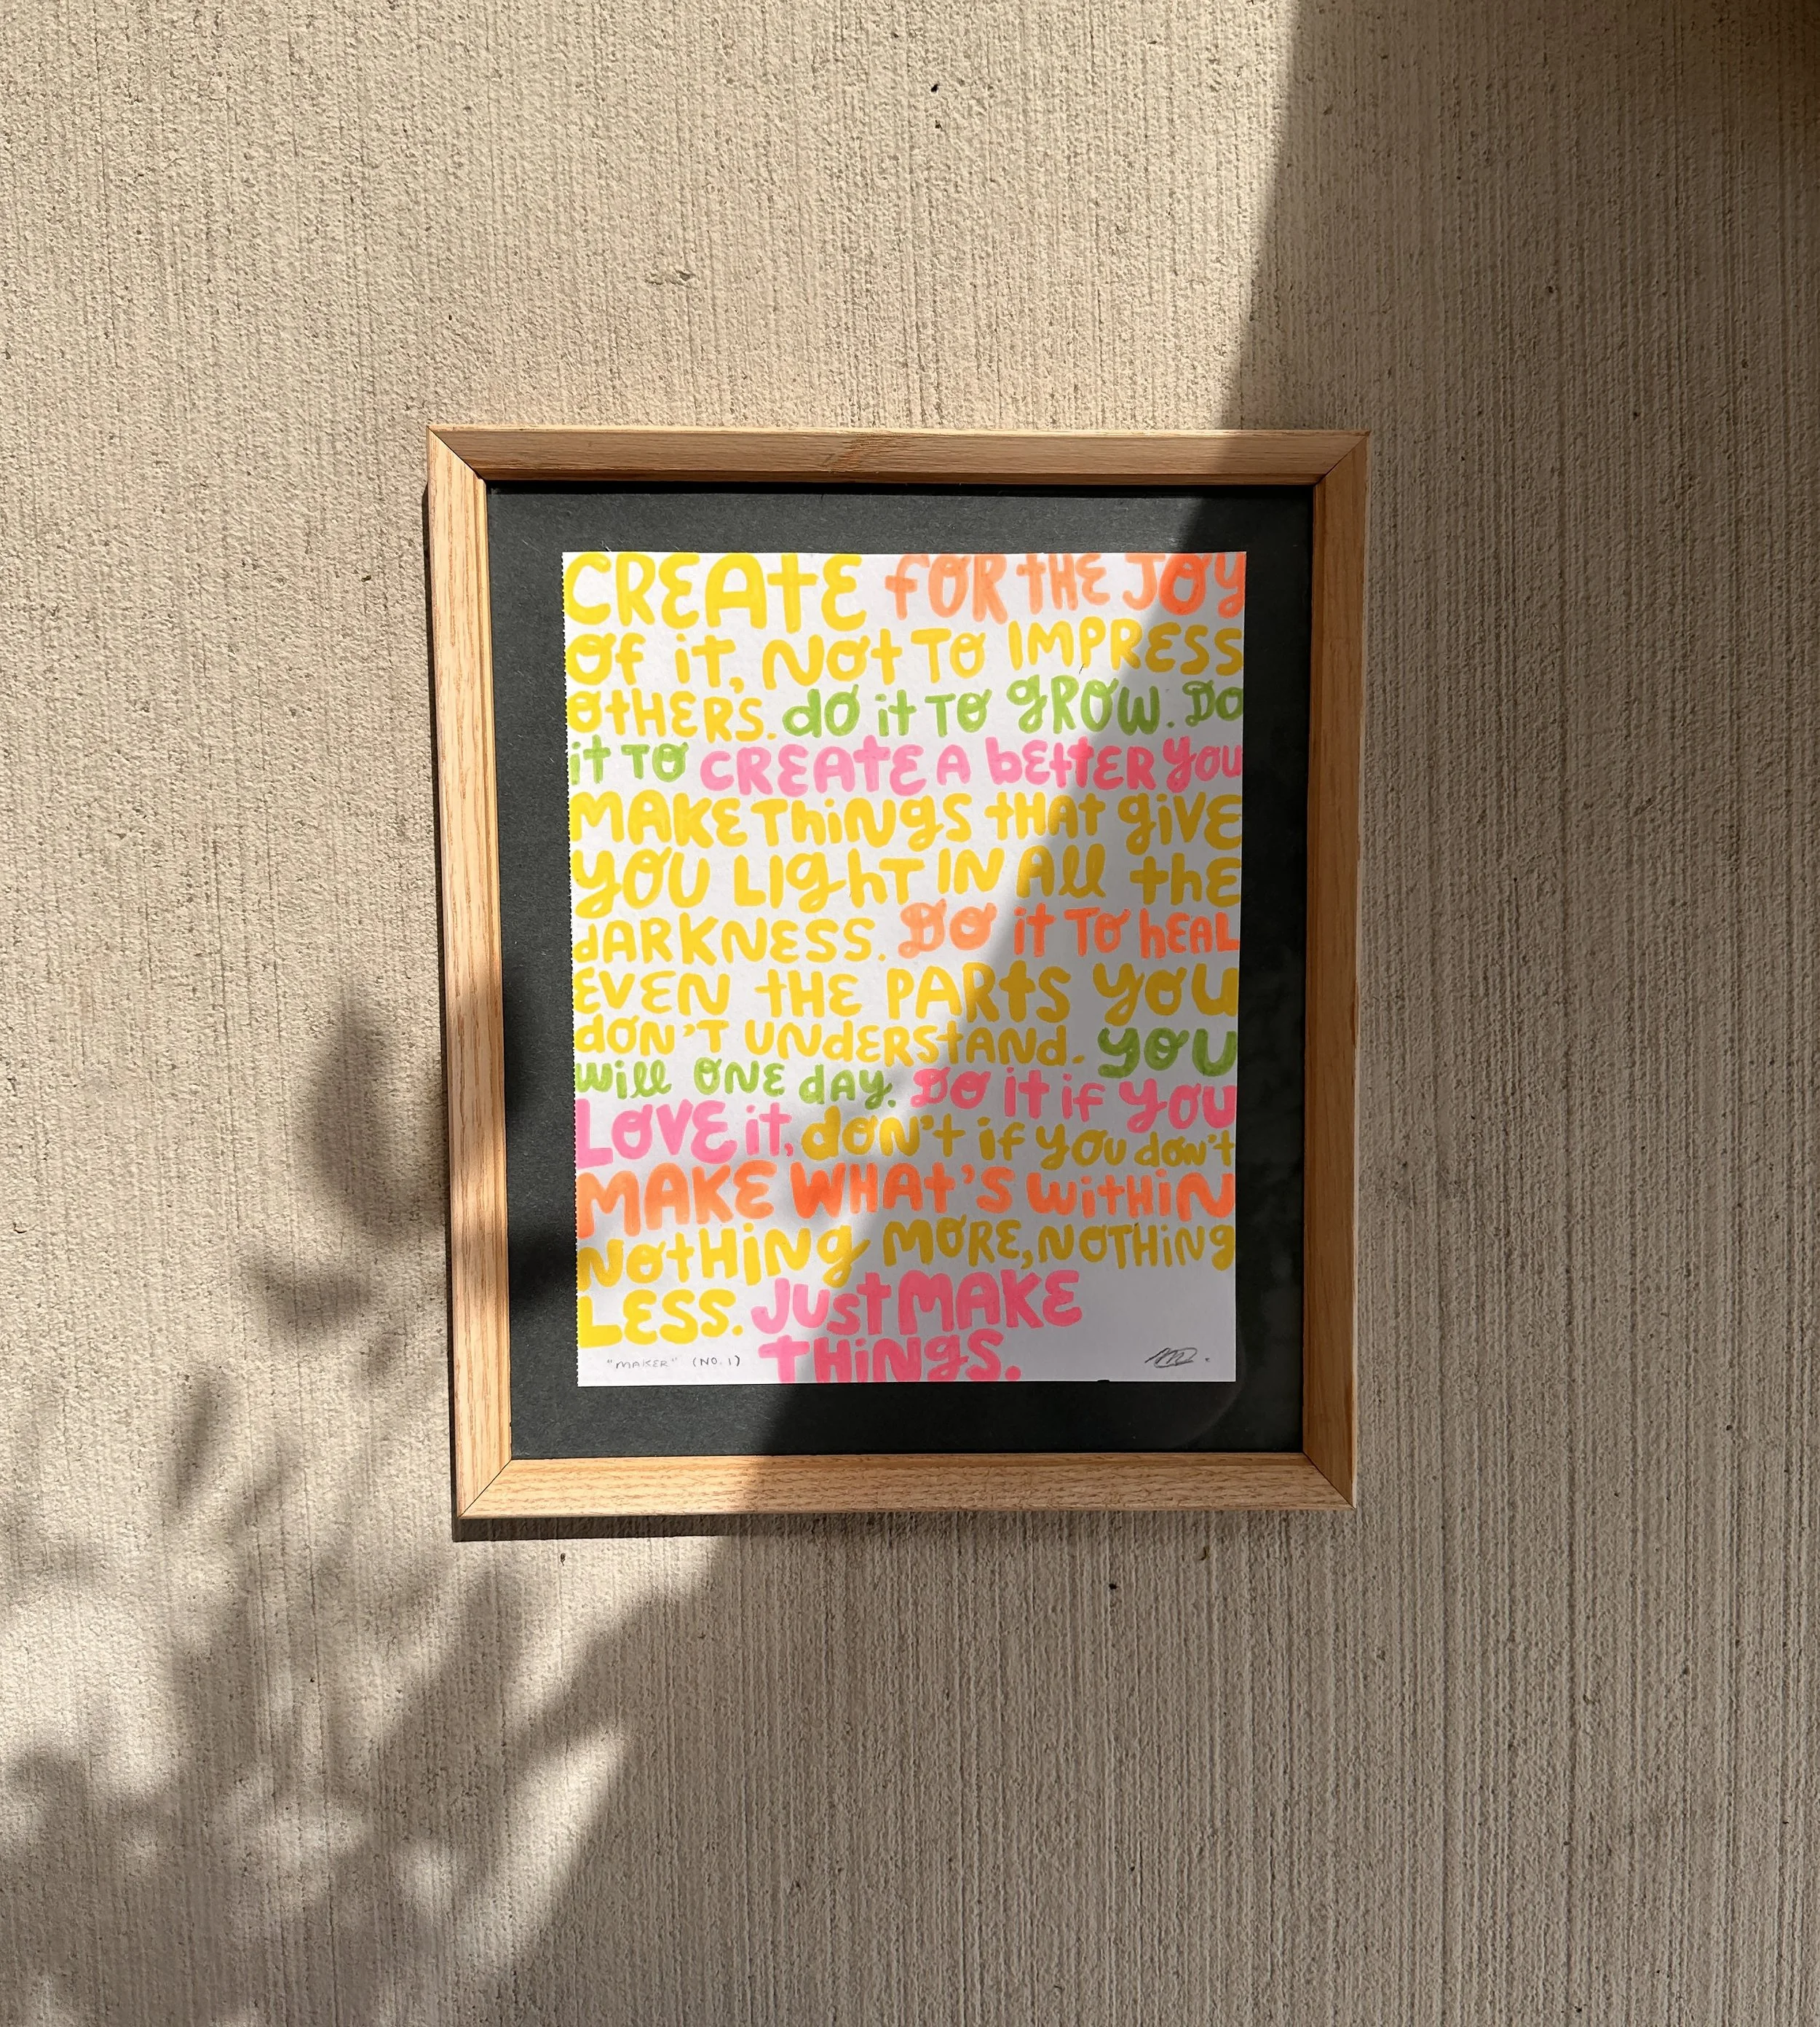 CREATE FOR THE JOY
Of it, NOt TO IMPRESS
OtHERS. dO it TO gROW. DO
it TO CREATE A bEttER YOU
MAKE ThiNgS tHAt giVE
YOU LIghT IN All the
dARKNESS. DO it TO hEAL
EVEN tHE PARtS YOU
dON'T UNdERStANd. YOU
will ONE dAY. DO it if YOU
LOVE it, dON't if YOU don't
MAKE WHAt'S WitHiN
NOtHiNg MORE, NOTHiNg
LESS. JUst MAKE
tHiNgS.
"MAKER" (NO. 1)